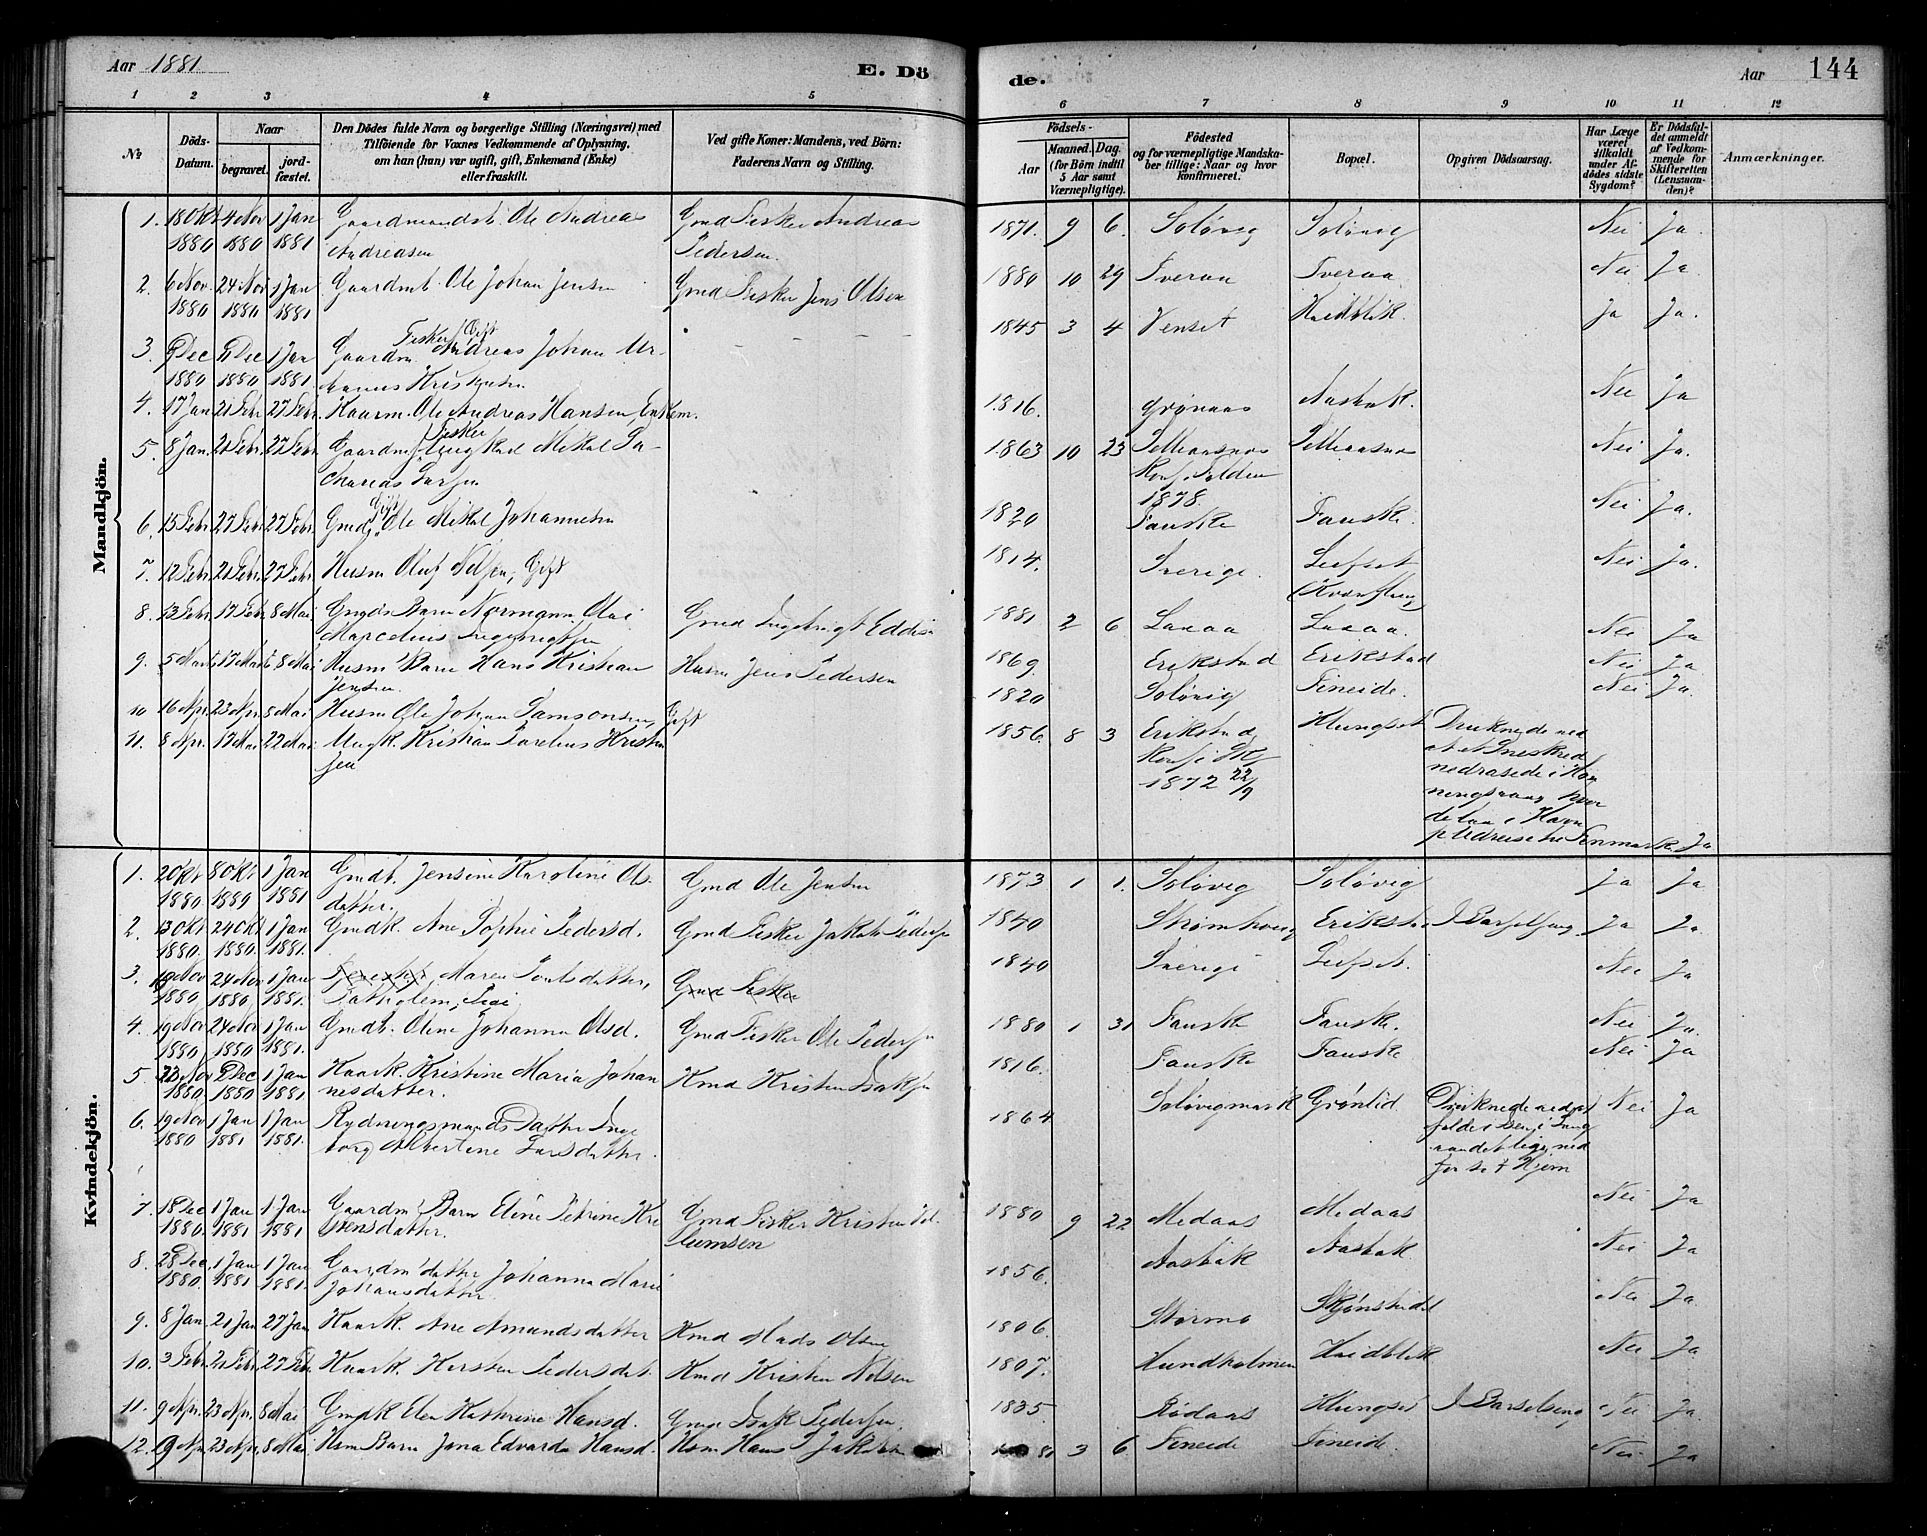 Aar 1881
E. Dö
de.
Aar 144
1 2 3 4 5
6 7 8 9 10 11 12
№
Döds-
Datum.
Naar
begravet.
jord-
fæstet.
Den Dödes fulde Navn og borgerlige Stilling (Næringsvei) med
Tilföiende for Voxnes Vedkommende af Oplysning,
om han (hun) var ugift, gift, Enkemand (Enke)
eller fraskilt.
Ved gifte Koner: Mandens, ved Börn:
Faderens Navn og Stilling.
Födsels-
Aar
Maaned. Dag.
(for Börn indtil
5 Aar samt
Værnepligtige).
Födested
og for værnepligtige Mandska-
ber tillige: Naar og hvor
konfirmeret.
Bopæl.
Opgiven Dödsaarsag.
Har Læge
været
tilkaldt
under Af-
dödes sidste
Sygdom?
Er Dödsfal-
det anmeldt
af Vedkom-
mende for
Skifteretten
(Lensman-
den)?
Anmærkninger.
Mandkjön.
1. 18 Okt 4 Nov 1 Jan Gaardmandsb. Ole Andreas Gmd Fisker Andreas 1871. 9 6. Soløvig Soløvig Nei Ja.
1880 1880 1881 Andreasen Pedersen.
2. 6 Nov. 24 Nov 1 Jan Gaardmb. Ole Johan Jensen Gmd Fisker Jens Olsen 1880 10 29 Tveraa Tveraa Nei Ja.
1880 1880 1881
Fisker Gift
3 Dec Dec 1 Jan Gaardm Andreas Johan Ur- 1845 3 4 Venset Hvidblik. Ja Ja.
1880 1880 1881. banus Kristensen
4. 17 Jan 21 Febr. 27 Febr. Kaarm. Ole Andreas Hansen, Enkem. 1816. Grønaas Aasbak. Nei Ja
Fisker
5. 8 Jan. 21 Febr. 27 Febr. Gaardm Ungkarl Mikal Za- 1863 10 23 Nei Ja.
charias Larsen Konf. 1878.
Gift
6. 15 Febr. 27 Febr. 27 Febr. Gmd, Ole Mikal Johannesen 1820 Fauske Fauske. Nei Ja.
7. 12 Febr. 21 Febr. 27 Febr. Husm Oluf Nilsen, Gift 1814. Sverige. Leifset Nei Ja.
8. 13 Febr. 17 Febr. 8 Mai Gmds Barn Normann Olai Gmd Ingebrigt 1881 2 6 Laxaa Laxaa. Nei Ja
Marcelius Ingebrigtsen
9. 5 Marts 17 Marts 8 Mai Husm Barn Hans Kristian Husm Jens Pedersen 1869. Erikstad Erikstad Nei Ja
Jensen.
10 16 Apr. 23 Apr. 8 Mai Husm Ole Johan Samsonsen, Gift 1820 Soløvig Fineide. Nei Ja.
11. 8 Apr. 17 Mai 22 Mai. Ungk. Kristian Karelius Kristen 1856. 8 3 Erikstad Klungset Druknede ved
sen Konf. i at et Sneskred
1872 22/9 nedrasede i Hon
ningsvaag, hvor
de laa i Havn
p Udreise til Finmarken. Ja
Kvindekjön.
1. 2 Okt 8 Okt 1 Jan Gmdb. Jensine Karoline Ols- Gmd Ole Jensen 1873 1 1. Soløvig Soløvig Ja Ja
1880 1880 1881 datter.
2. 13 Okt 24 Okt 1 Jan Gmdk. Ane Sophie Pedersd. Gmd Fisker Jakob Pedersen 1840 Strømhaug Erikstad I Barselseng Ja Ja.
1880. 1880. 1881.
3. 19 Nov 24 Nov 1 Jan Maren Poulsdatter, Gmd Fisker 1840 Sverige Leifset. Nei Ja
1880 1880, 1881.
4. 19 Nov 24 Nov 1 Jan Gmdb. Oline Johanna Olsd. Gmd Fisker Ole Pedersen 1880 1 31 Fauske Fauske. Nei Ja.
1880 1880 1881.
5. 23 Nov 2 Dec 1 Jan Kaark. Kristine Maria Johan Kmd Kristen Isaksen 1816. Fauske Fauske Nei Ja
1880 1880 1881. nesdatter.
6. 19 Nov 1 Jan 1 Jan Rydningsmands Datter Inge 1864 Soløvigmark Grønlid. Druknede ved at Nei Ja
1880 1881 1881. borg Albertine Larsdatter. falde i
ned
for sit Hjem
7. 18 Dec 1 Jan 1 Jan Gaardm Barn Eline Petrine Kri Gmd Fisker Kristen 1880 9 22 Medaas Medaas Nei Ja
1880. 1881 1881 stensdatter.
8. 28 Dec 1 Jan 1 Jan Gaardm datter Johanna Marie 1856. Aasbak Aasbak. Nei Ja
1880. 1881 1881. Johansdatter.
9. 8 Jan. 21 Jan 27 Jan Kaark. Ane Amundsdatter Kmd Mads Olsen 1806. Stormo Skjønstad Nei Ja
10. 3 Febr. 21 Febr. 27 Febr Kaark. Kirsten Pedersdat. Kmd Kristen Nilsen 1807. Hundholmen Hvidblik Nei Ja
11. 9 Apr. 23 Apr. 8 Mai Gmdk Elen Kathrine Hansd. Gmd Isak Pedersen. 1835 Rødaas Klungset I Barselseng Nei Ja.
12. 9 Apr 23 Apr. 8 Mai. Hsm Barn Jona Edvarda Hansd. Hsm Hans 81 3 6 Fineide Fineide. Nei Ja